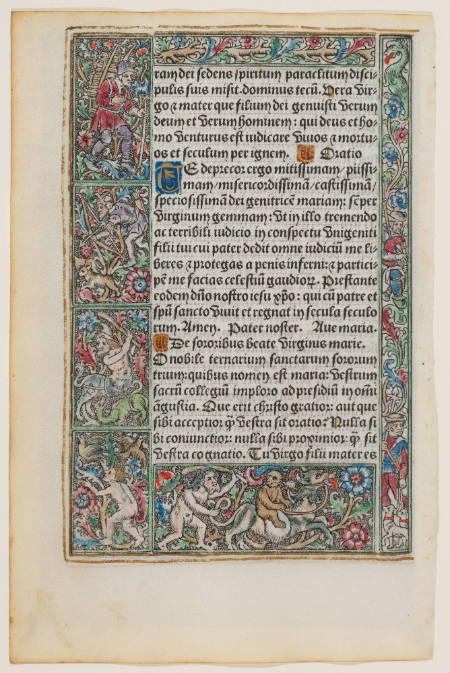 ram dei sedens spiritum paraclitum disci-
pulis suis misit. dominus tecū. Vera vir-
go ⁊ mater que filium dei genuisti verum
deum et verum hominem: qui deus et ho-
mo venturus est iudicare viuos ⁊ mortu-
os et seculum per ignem. Oratio
TE deprecor ergo mitissimam / piissi-
mam / misericordissimā / castissimā /
speciosissimā dei genitricē mariam: semper
virginum gemmam: vt in illo tremendo
ac terribili iudicio in conspectu vnigeniti
filii tui cui pater dedit omne iudiciū me li-
beres ⁊ protegas a penis inferni: ⁊ partici-
pē me facias celestiū gaudioꝝ. Prestante
eodem dn̄o nostro iesu xp̄o: qui cū patre et
spū sancto viuit et regnat in secula seculo
rum. Amen. Pater noster. Aue maria.
De sororibus beate virginis marie.
O nobile ternarium sanctarum sororum
trium: quibus nomen est maria: vestrum
sacrū collegiū imploro ad presidiū in om̄i
agustia. Que erit christo gratior: aut que
sibi acceptior: q̄ vestra sit oratio? Nulla si
bi coniunctior: nulla sibi proximior q̄ sit
vestra cognatio. Tu virgo filii mater es